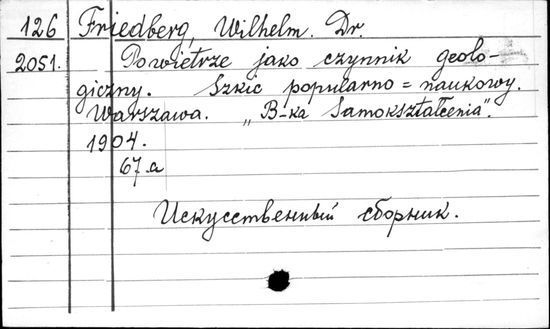 126 Friedberg, Wilhelm. Dr.
2051. Powietrze jako czynnik geolo-
giczny. Szkic popularno=naukowy.
Warszawa. „B-ka Samokształcenia".
1904.
67 a
Искусственный сборник.